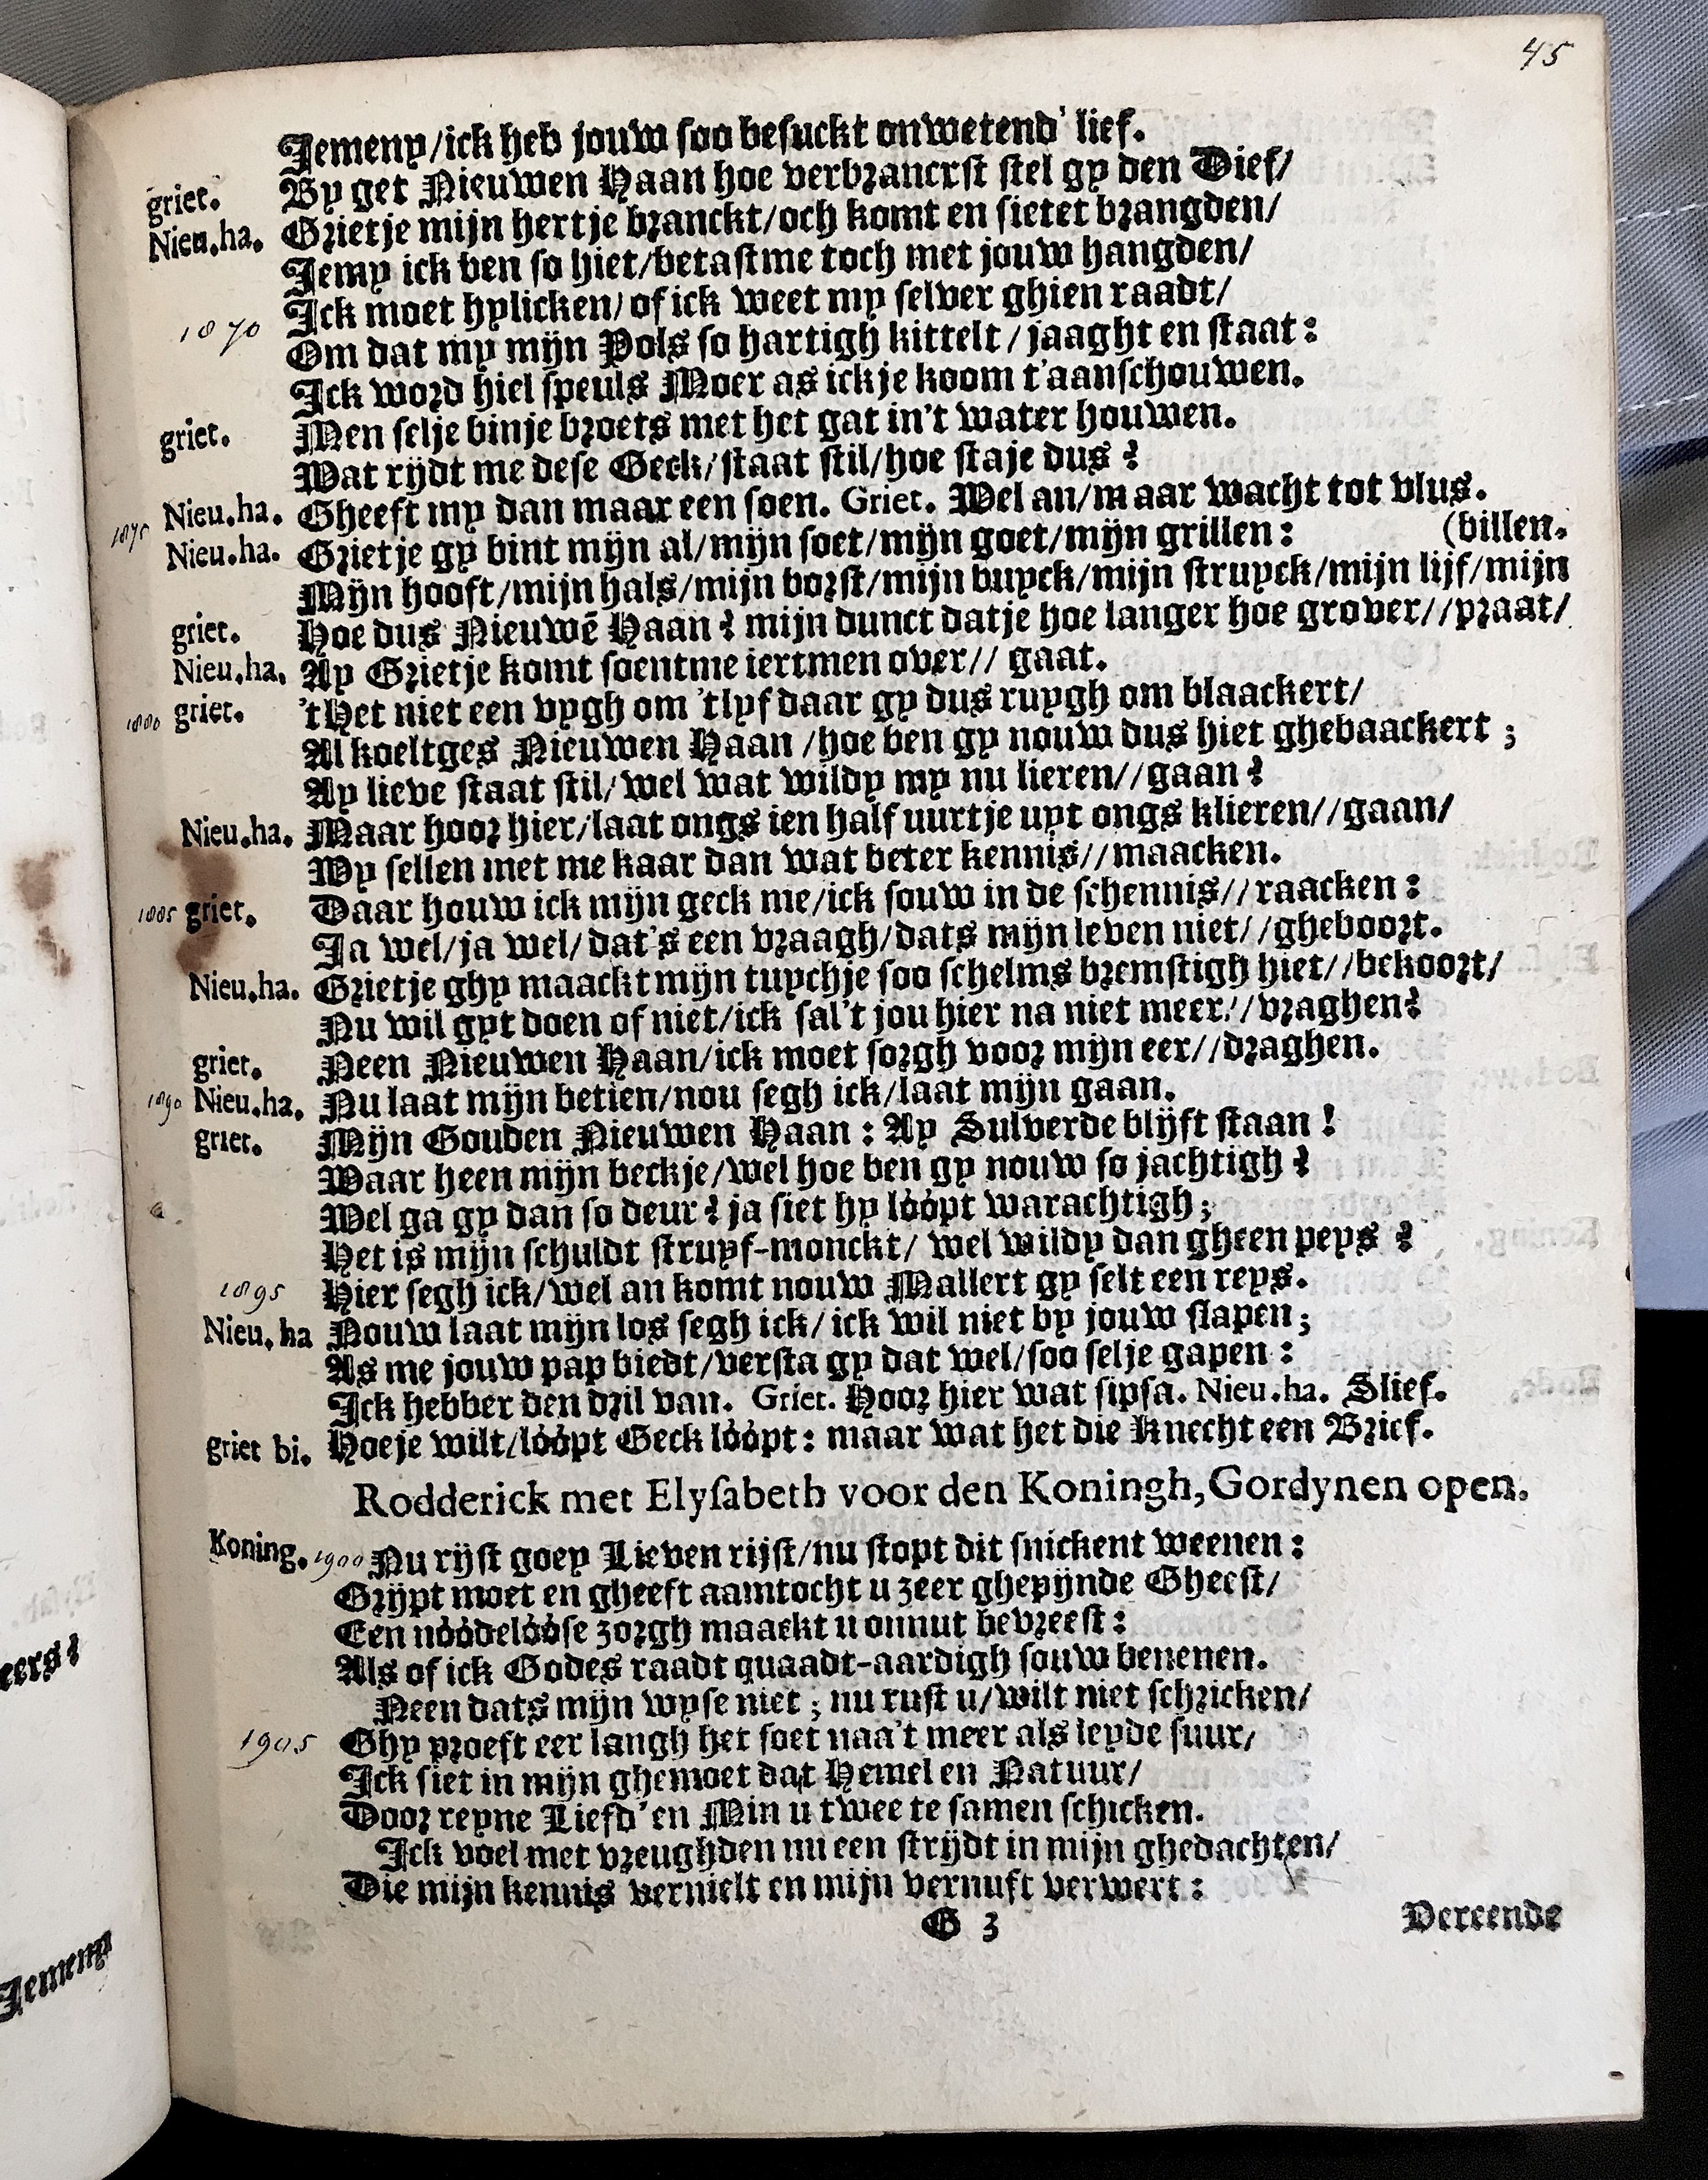 45
Jemeny/ick heb jouw soo besuckt onwetend' lief.
griet. By get Nieuwen Haan hoe verbrancrst stel gy den Dief/
Nieu.ha. Grietje mijn hertje branckt/och komt en sietet brangden/
Jemy ick ben so hiet/betastme toch met jouw hangden/
Ick moet hylicken/of ick weet my selver ghien raadt/
1870 Om dat my mijn Pols so hartigh kittelt/jaaght en staat:
Ick word hiel speuls Moer as ick je koom t'aanschouwen.
griet. Men selje binje broets met het gat in't water houwen.
Wat rijdt me dese Geck/staat stil/hoe staje dus?
Nieu.ha. Gheeft my dan maar een soen. Griet. Wel an/maar wacht tot vlus.
1875 Nieu.ha. Grietje gy bint mijn al/mijn soet/mijn goet/mijn grillen: (billen.
Mijn hooft/mijn hals/mijn borst/mijn buyck/mijn struyck/mijn lijf/mijn
griet. Hoe dus Nieuwē Haan? mijn dunct datje hoe langer hoe grover//praat/
Nieu.ha. Ay Grietje komt soentme iertmen over// gaat.
1880 griet. 't Het niet een vygh om 'tlyf daar gy dus ruygh om blaackert/
Al koeltges Nieuwen Haan/hoe ben gy nouw dus hiet ghebaackert;
Ay lieve staat stil/wel wat wildy my nu lieren//gaan?
Nieu.ha. Maar hoor hier/laat ongs ien half uurtje uyt ongs klieren//gaan/
Wy sellen met me kaar dan wat beter kennis//maacken.
1885 griet. Daar houw ick mijn geck me/ick souw in de schennis//raacken:
Ja wel/ja wel/dat's een vraagh/dats mijn leven niet//gheboort.
Nieu.ha. Grietje ghy maackt mijn tuychje soo schelms bremstigh hiet//bekoort/
Nu wil gyt doen of niet/ick sal't jou hier na niet meer//vraghen?
griet. Neen Nieuwen Haan/ick moet sorgh voor mijn eer//draghen.
1890 Nieu.ha. Nu laat mijn betien/nou segh ick/laat mijn gaan.
griet. Mijn Gouden Nieuwen Haan: Ay Sulverde blijft staan!
Waar heen mijn beckje/wel hoe ben gy nouw so jachtigh?
Wel ga gy dan so deur? ja siet hy lóópt warachtigh;
Het is mijn schuldt struyf-monckt/wel wildy dan gheen peys?
1895 Hier segh ick/wel an komt nouw Mallert gy selt een reys.
Nieu.ha Nouw laat mijn los segh ick/ick wil niet by jouw slapen;
As me jouw pap biedt/versta gy dat wel/soo selje gapen:
Ick hebber den dril van. Griet. Hoor hier wat sipsa. Nieu.ha. Slief.
griet bi. Hoeje wilt/lóópt Geck lóópt: maar wat het die Knecht een Brief.
Rodderick met Elysabeth voor den Koningh, Gordynen open.
Koning. 1900 Nu rijst goey Lieven rijst/nu stopt dit snickent weenen:
Grijpt moet en gheeft aamtocht u zeer ghepijnde Gheest/
Een nóódelóóse zorgh maackt u onnut bevreest:
Als of ick Godes raadt quaadt-aardigh souw benenen.
Neen dats mijn wyse niet; nu rust u/wilt niet schricken/
1905 Ghy proeft eer langh het soet naa't meer als leyde suur/
Ick siet in mijn ghemoet dat Hemel en Natuur/
Door reyne Liefd' en Min u twee te samen schicken.
Ick voel met vreughden nu een strijdt in mijn ghedachten/
Die mijn kennis vernielt en mijn vernuft verwert:
G 3
Vereende
eers?
Jemeny